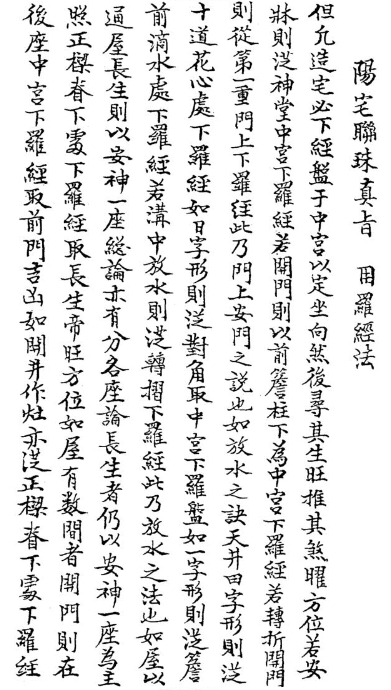 陽宅聯珠真旨　用羅經法
但凢造宅必下經盤于中宫以定坐向然後尋其生旺推其煞曜方位若安
牀則從神堂中宫下羅經若開門則以前簷柱下為中宫下羅經若轉折開門
則從第一重門上下羅經此乃門上安門之説也如放水之訣天井田字形則從
十道花心處下羅經如日字形則從對角取中宫下羅盤如一字形則從簷
前滴水處下羅經若溝中放水則從轉摺下羅經此乃放水之法也如屋以
通屋長生則以安神一座総論亦有分各座論長生者仍以安神一座為主
照正樑脊下處下羅經取長生帝旺方位如屋有数間者開門則在
後座中宫下羅經取前門吉凶如開井作灶亦從正樑脊下處下羅經